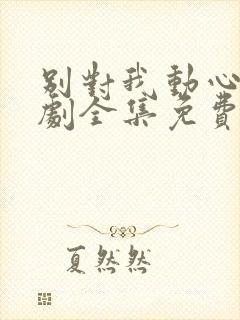 別對我動心短
劇全集免費
夏然然